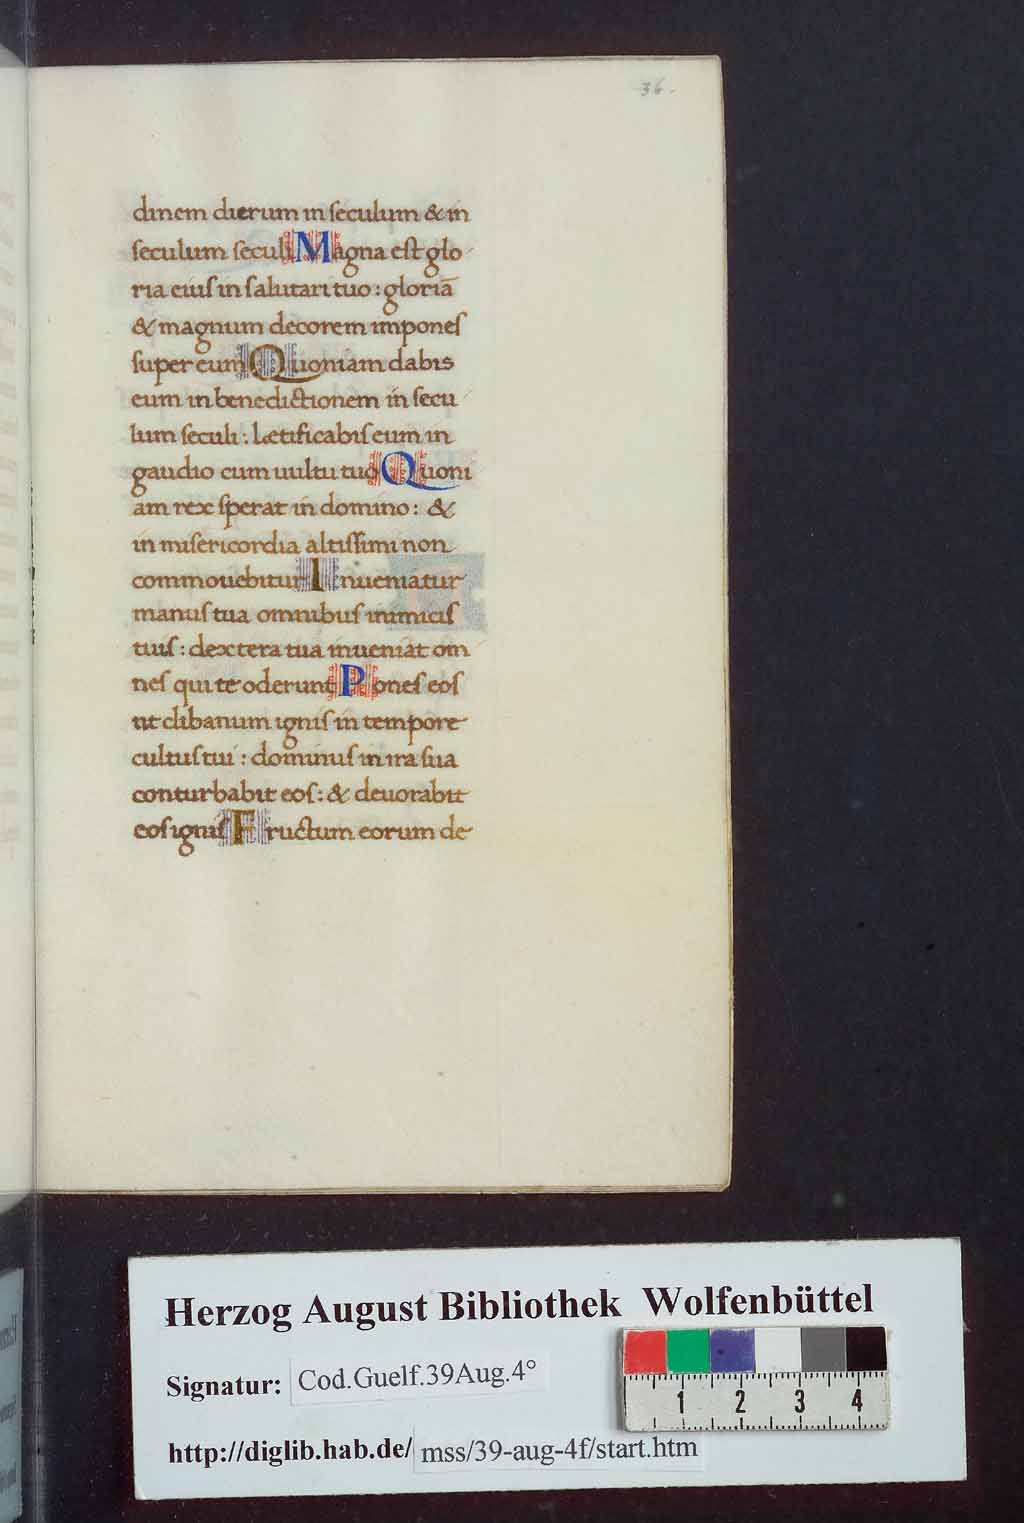 36.
dinem dierum in ſeculum & in
ſeculum ſeculi Magna eſt glo
ria eiuſ in ſalutari tuo : gloriā
& magnum decorem imponeſ
ſuper eum Quoniam dabis
eum in benedictionem in ſecu
lum ſeculi : Lætificabiſ eum in
gaudio cum uultu tuo Quoni
am rex ſperat in domino : &
in miſericordia altiſſimi non
commouebitur Inueniatur
manuſ tua omnibuſ inimiciſ
tuiſ : dextera tua inueniat om
neſ qui te oderunt Poneſ eoſ
ut clibanum igniſ in tempore
cultuſ tui : dominuſ in ira ſua
conturbabit eoſ : & deuorabit
eoſ igniſ Fructum eorum de
Herzog August Bibliothek Wolfenbüttel
Signatur: Cod.Guelf.39Aug.4°
http://diglib.hab.de/ mss/39-aug-4f/start.htm
1 2 3 4